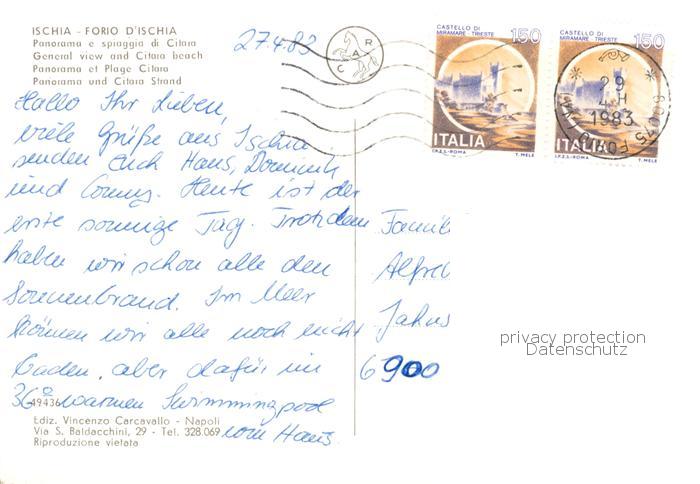 ISCHIA - FORIO D'ISCHIA
Panorama e spiaggia di Citara
General view and Citara beach
Panorama et Plage Citara
Panorama und Citara Strand
27.4.83
C A R
CASTELLO DI
MIRAMARE-TRIESTE 150
ITALIA
I.P.Z.S.-ROMA T. MELE
CASTELLO DI
MIRAMARE-TRIESTE 150
ITALIA
I.P.Z.S.-ROMA T. MELE
29
4-H
1983
80075 FORIO
Hallo Ihr Lieben,
viele Grüße aus Ischia
senden Euch Hans, Dominik
und Conny. Heute ist der
erste sonnige Tag. Trotzdem
haben wir schon alle den
Sonnenbrand. Im Meer
können wir alle noch nicht
baden, aber dafür im
36° warmen Swimmingpool
vom Haus.
Famili
Alfred
Jahns
6900
privacy protection
Datenschutz
49436
Ediz. Vincenzo Carcavallo - Napoli
Via S. Baldacchini, 29 - Tel. 328.069
Riproduzione vietata